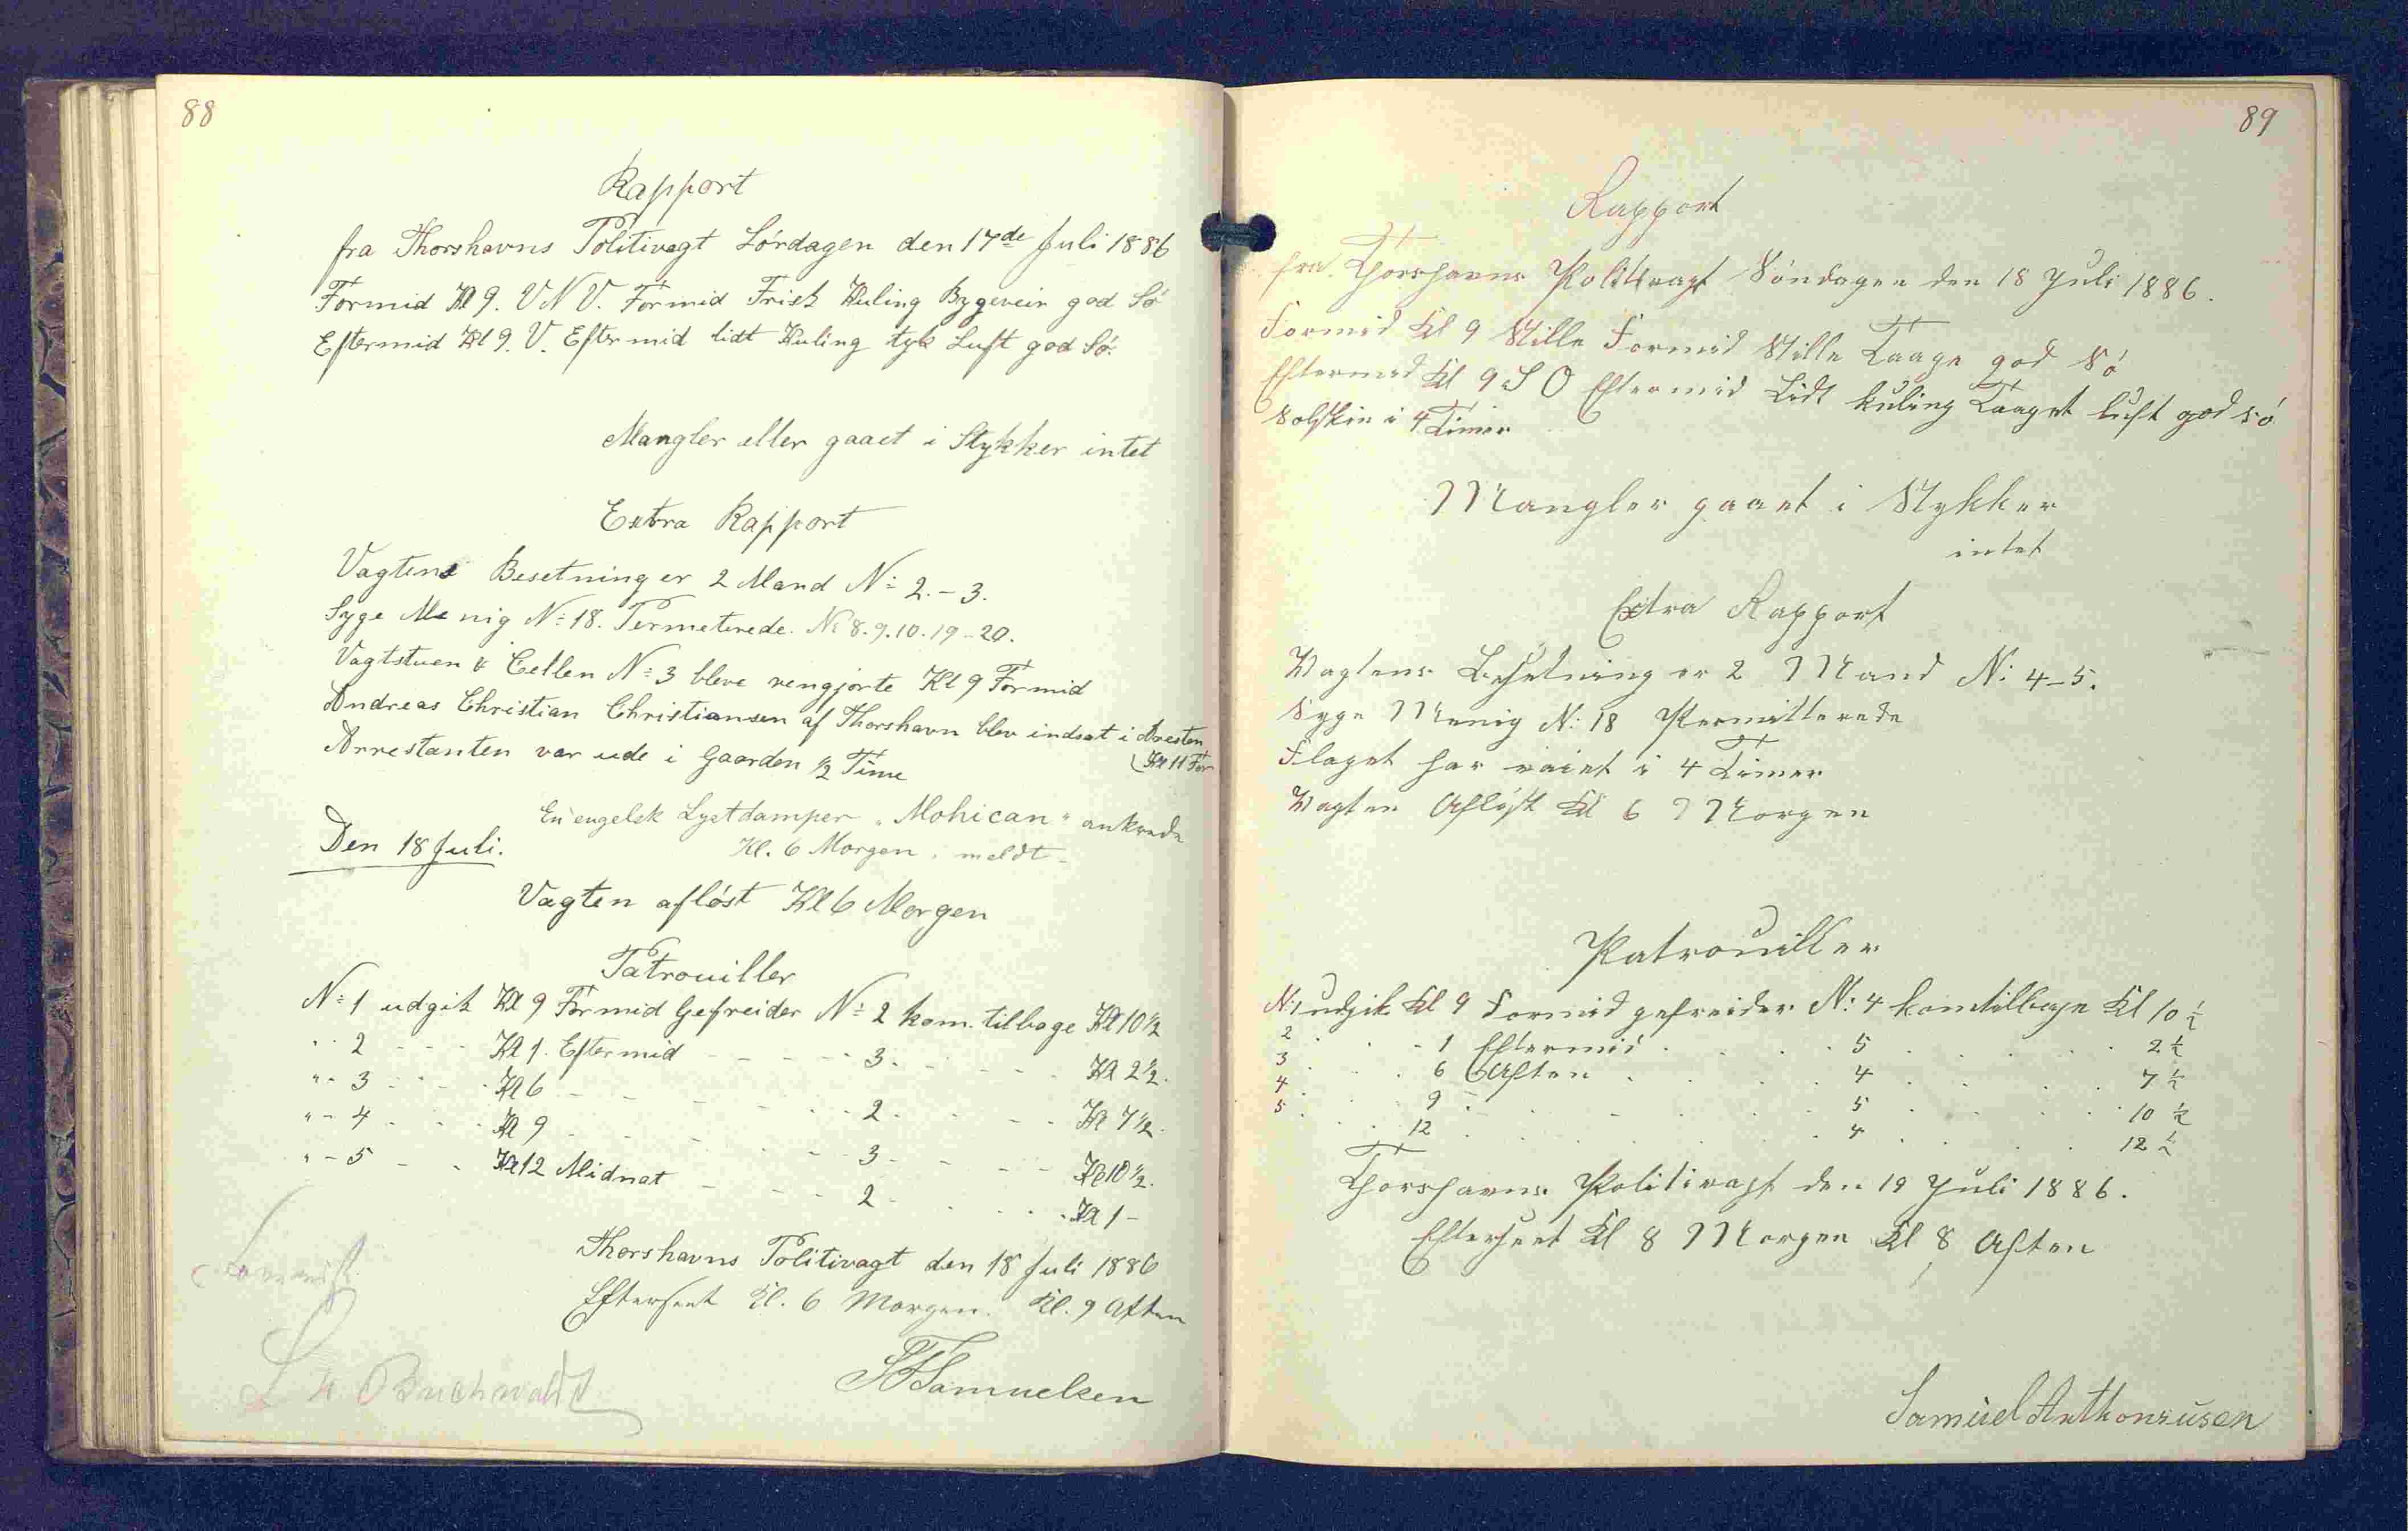 88
Rapport
fra Thorshavns Politivagt Lördagen den 17de Juli 1886
Formid Kl 9. V N V. Formid Frisk Kuling Bygeveir god Sö
Eftermid Kl 9. V. Eftermid lidt Kuling tyk Luft god Sö.
Mangler eller gaaet i Stykker intet
Extra Rapport
Vagtens Besetning er 2 Mand No 2.-3.
Syge Menig No 18. Permeterede. No 8.9.10.19-20.
Vagtstuen & Cellen No 3 bleve rengjorte Kl 9 Formid
Andreas Christian Christiansen af Thorshavn blev indsat i Aresten
Kl 11 For
Arrestanten var ude i Gaarden 1/2 Time
En engelsk Lystdamper "Mohican" ankrede
Den 18 Juli. Kl. 6 Morgen, meldt -
Vagten aflöst Kl 6 Morgen
Patrouiller
No 1 udgik Kl 9 Formid Gefreider No 2 kom tilbage Kl 10 1/2
" 2 - - - Kl 1. Eftermid - - - - 3. - - - Kl 2 1/2.
" - 3 - - - Kl 6 - - - - 2. - - - Kl 7 1/2.
" - 4 - - - Kl 9 - - - - 3 - - - Kl 10 1/2.
" - 5 - - Kl 12 Midnat - - - - 2 - - - Kl 1 -
Thorshavns Politivagt den 18 Juli 1886
Efterseet Kl. 6 Morgen. Kl. 9 Aften
Samuelsen
Buchwaldt
89
Rapport
fra Thorshavns Politivagt Söndagen den 18 Juli 1886.
Formid Kl 9 Stille Formid Stille Taage god Sö
Eftermid Kl 9 S O Eftermid Lidt kuling Taaget luft god sö
Solskin i 4 Timer
Mangler gaaet i Stykker
intet
Extra Rapport
Vagtens Besetning er 2 Mand No 4-5.
Syge Menig No 18 Permitterede
Flaget har vaiet i 4 Timer
Vagten Aflöst Kl 6 Morgen
Patrouiller
No 1 udgik Kl 9 Formid gefreider No 4 kom tilbage Kl 10 1/2
2 . . . 1 Eftermid . . . 5 . . . 2 1/2
3 . . . 6 Aften . . . 4 . . . 7 1/2
4 . . . 9 . . . 5 . . . 10 1/2
5 . . . 12 . . . 4 . . . 12 1/2
Thorshavns Politivagt den 19 Juli 1886.
Efterseet Kl 8 Morgen Kl 8 Aften
Samúel Anthoniusen